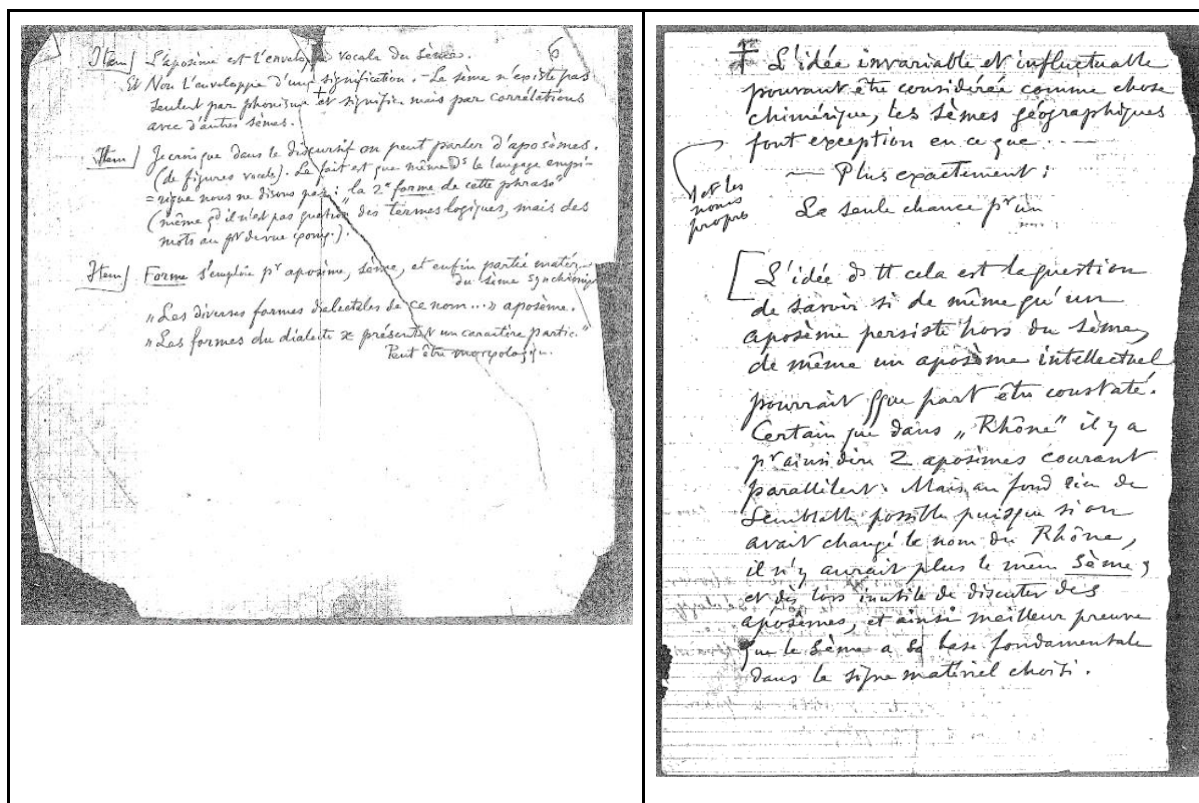 Item] L'aposème est l'enveloppe vocale du sème. 6
Et Non l'enveloppe d'une signification. Le sème n'existe pas
seulent par phonisme et signific. mais par corrélations
avec d'autres sèmes.
Item] Je crois que dans le discursif on peut parler d'aposèmes.
(de figures vocale). Le fait est que même ds le langage empi-
=rique nous ne disons pas: la 2e forme de cette phrase"
(même qd il n'est pas question des termes logiques, mais des
mots au pt de vue comp.).
Item] Forme s'emploie pr aposème, sème, et enfin partie matér.
du sème
„Les diverses formes dialectales de ce nom..." aposème.
„Les formes du dialecte x présentent un caractère partic."
Peut être morpologiqu.
L'idée invariable et influctuable
pouvant être considérée comme chose
chimérique, les sèmes géographiques
font exception en ce que .—
— Plus exactement:
et les
noms
propres
La seule chance pr un
[L'idée d tt cela est la question
de savoir si de même qu'un
aposème persiste hors du sème,
de même un aposème intellectuel
pourrait qque part être constaté.
Certain que dans „Rhône" il y a
pr ainsi dire 2 aposèmes courant
parallèlent. Mais au fond rien de
semblable possible puisque si on
avait changé le nom du Rhône,
il n'y aurait plus le même sème,
et dès lors inutile de discuter des
aposèmes, et ainsi meilleur preuve
que le sème a sa base fondamentale
dans le signe matériel choisi.